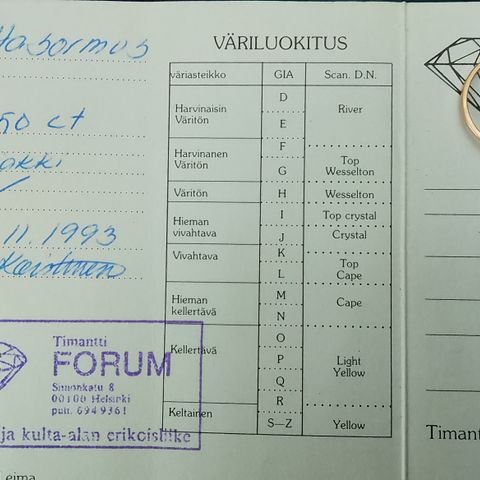 tasormus
50 ct
okki
11.1993
VÄRILUOKITUS
väriasteikko GIA Scan. D.N.
Harvinaisin Väritön
D
E
River
Harvinanen Väritön
F
G
Top Wesselton
Väritön H Wesselton
Hieman vivahtava
I Top crystal
J Crystal
Vivahtava
K
L
Top Cape
Hieman kellertävä
M
N
Cape
Kellertävä
O
P
Q
R
Light Yellow
Keltainen S—Z Yellow
Timantti
FORUM
Simonkatu 8
00100 Helsinki
puh. 6949361
ja kulta-alan erikoisliike
Leima
Timant